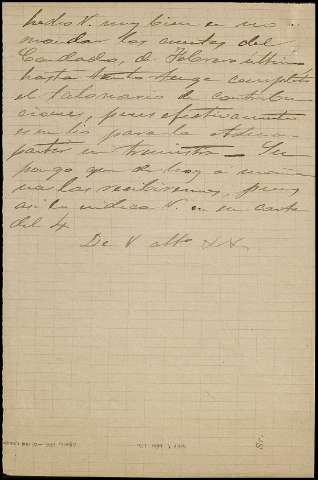 hecho V. muy bien en no
mandar las cuentas del
Condado, de Febrero últim
hasta tenga completo
el talonario de contribu
ciones, pues efectivamente
es un lío para la
partir en Su
pongo que de hoy a maña
na las recibiremos, pues
así lo indica V. en su carta
del 4
De V. atto
Sr.